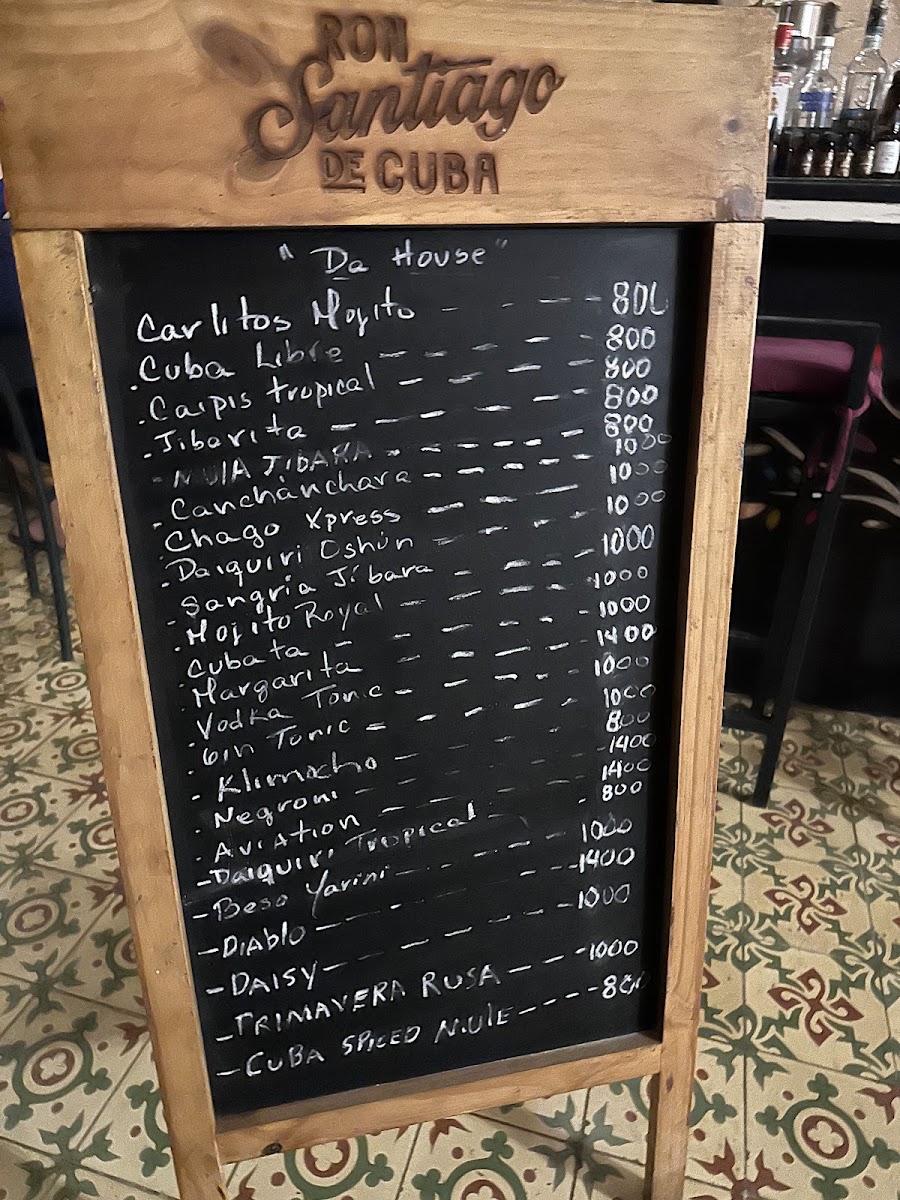 RON
Santiago
DE CUBA
" Da House "
Carlitos Mojito - - - - 800
.Cuba Libre - - - - 800
.Caipis tropical - - - - 800
.Jibarita - - - - 800
-MULA JIBARA - - - - 800
.Canchánchara - - - - 1000
.Chago Xpress - - - - 1000
.Daiquiri Oshún - - - - 1000
.Sangria Jíbara - - - - 1000
.Mojito Royal - - - - 1000
.Cubata - - - - 1000
.Margarita - - - - 1400
.Vodka Tonic - - - - 1000
.Gin Tonic - - - - 1000
.Klimacho - - - - 800
.Negroni - - - - 1400
.Aviation - - - - 1400
-Daiquiri Tropical - - 800
-Beso Yarini - - - - 1000
-DIABlo - - - - 1400
-DAISY - - - - 1000
-PRIMAVERA RUSA - - - - 1000
-CUBA SPICED MULE - - - - 800